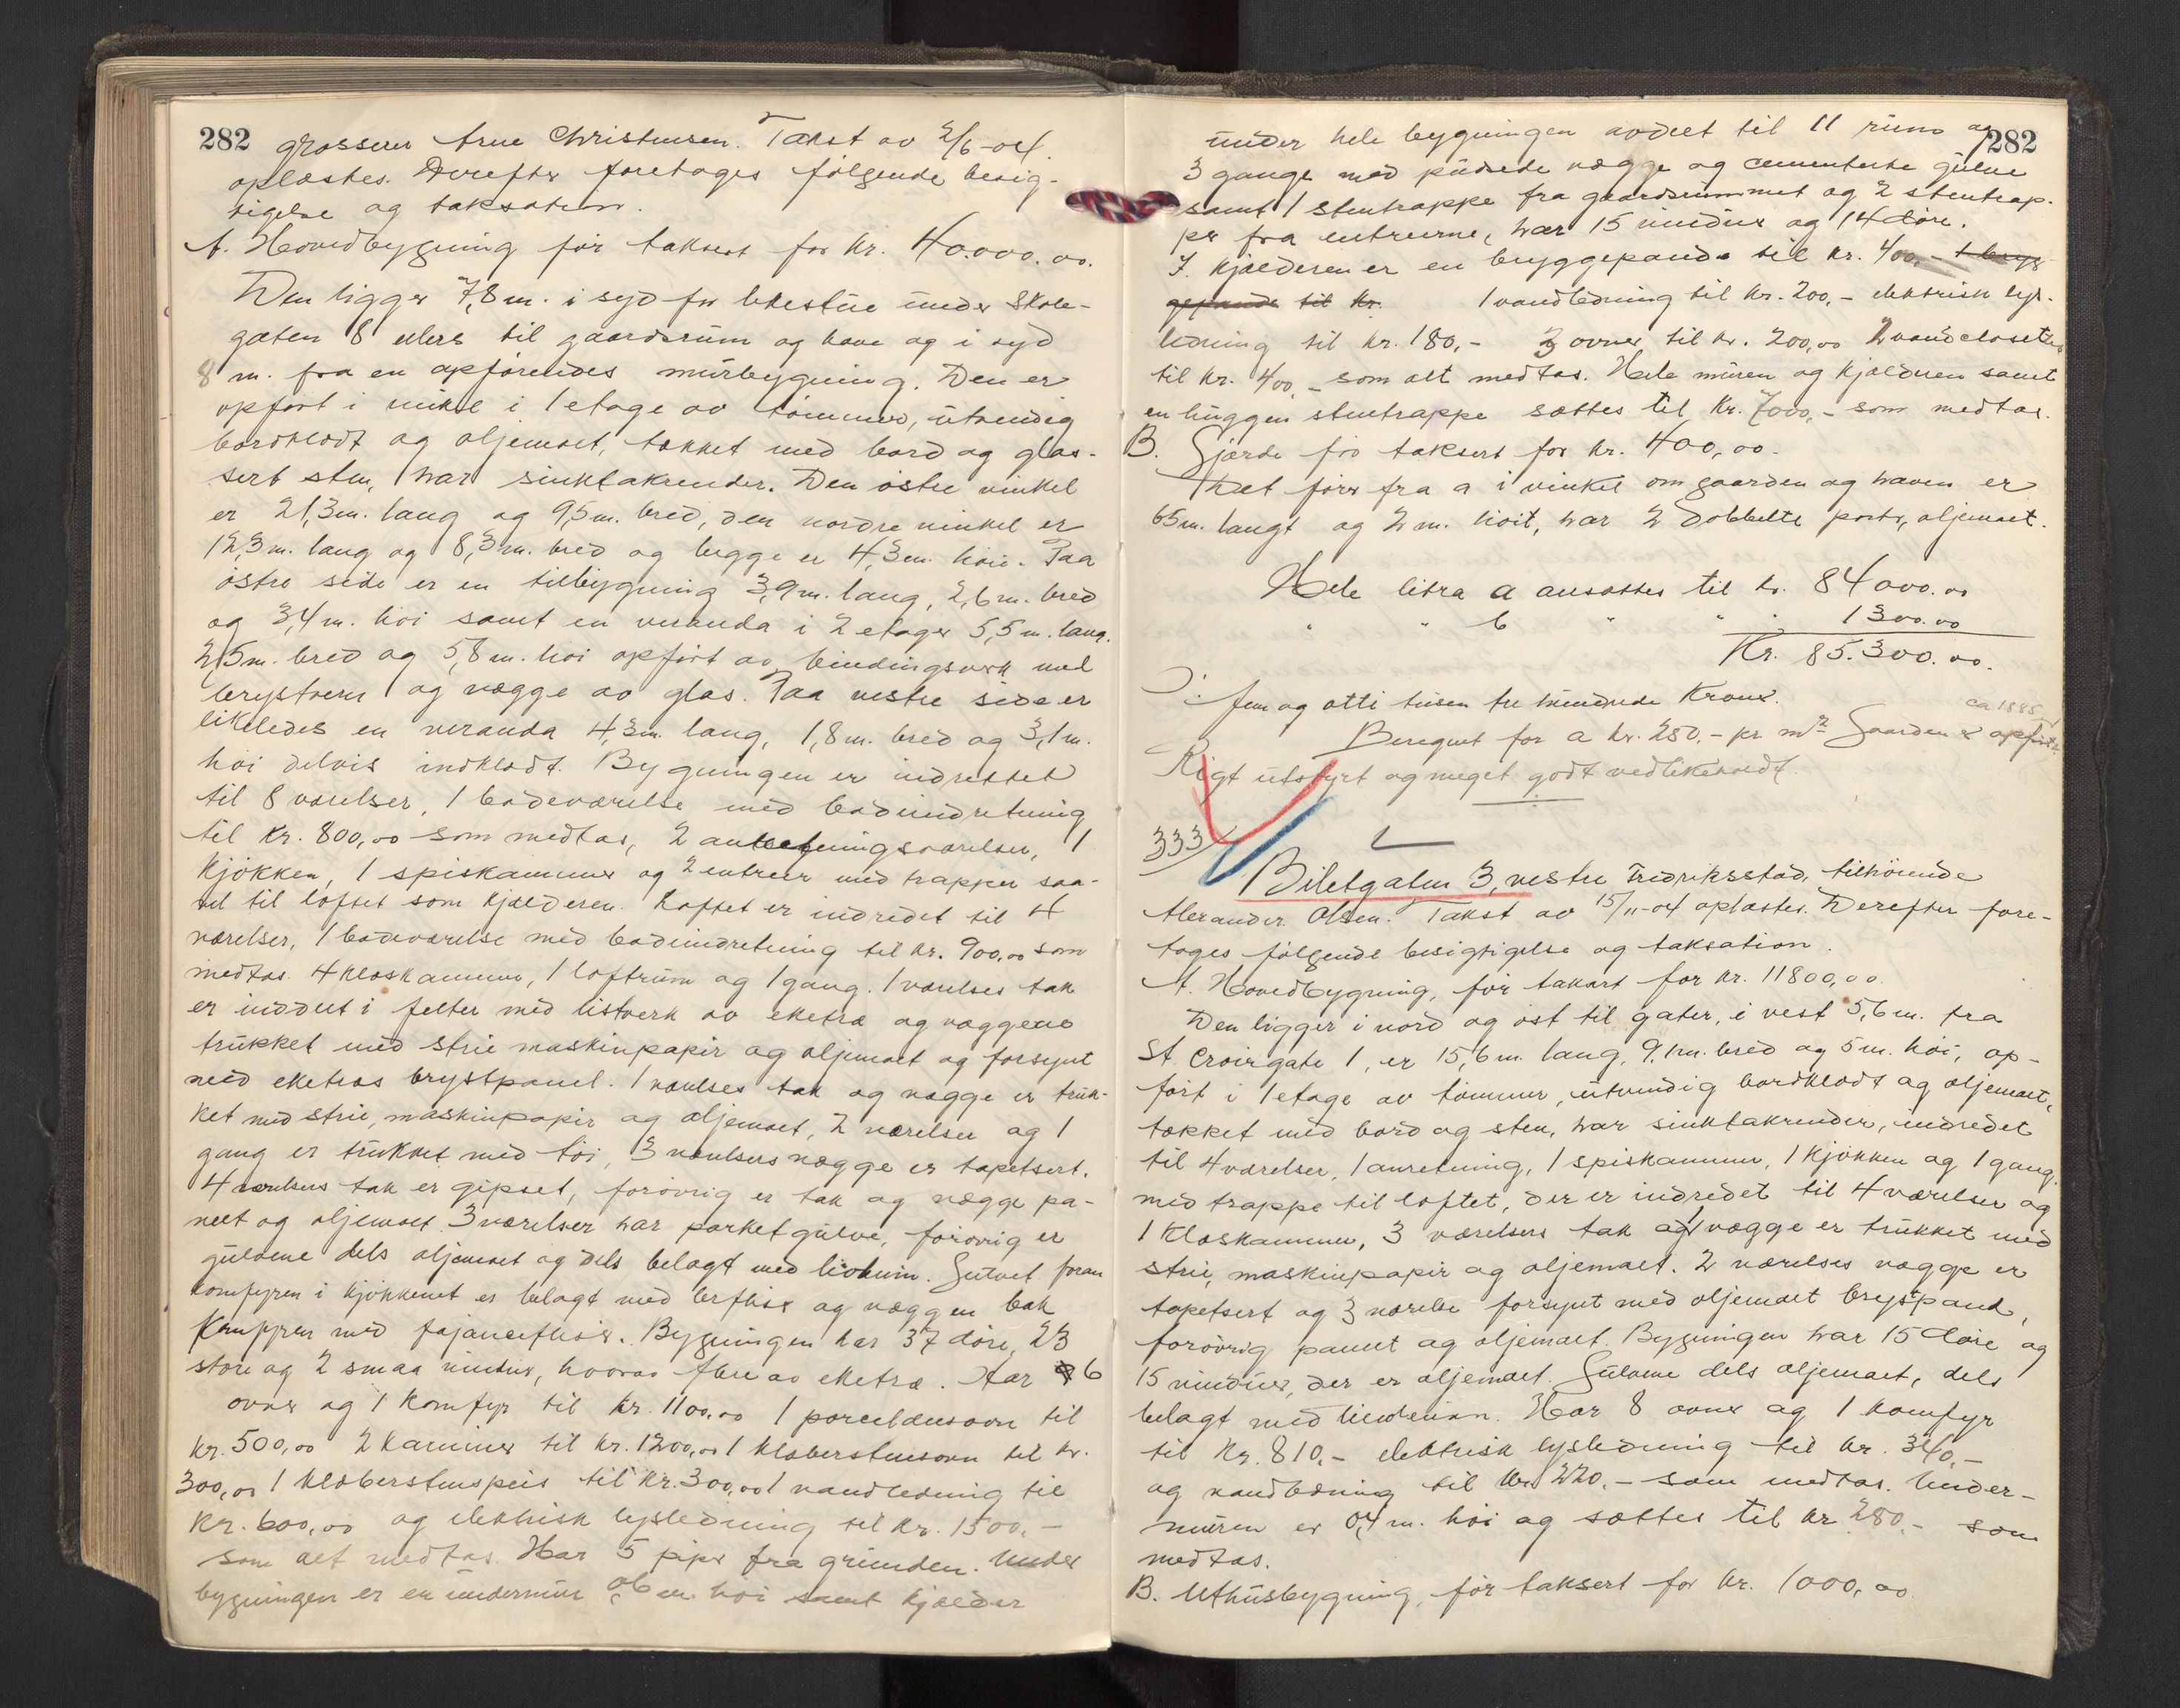 282
grosserer Arne Christensen. Takst av 2/6-04.
oplæstes. Derefter foretages følgende besig-
tigelse og taksation.
A. Hovedbygning før taksert for kr. 40.000.00.
Den ligger 7,8 m. i syd for lekestue under Skole-
gaten 8 ellers til gaardsrum og have og i syd
8 m. fra en opførendes murbygning. Den er
opført i vinkel i 1 etage av tømmer, utvendig
bordklædt og oljemalt, tækket med bord og glas-
sert sten, har sinktakrender. Den østre vinkel
er 21,3 m. lang og 9,5 m. bred, den nordre vinkel er
12,3 m. lang og 8,3 m. bred og begge er 4,3 m. høie. Paa
østre side er en tilbygning 3,9 m. lang, 2,6 m. bred
og 3,4 m. høi samt en veranda i 2 etager 5,5 m. lang.
2,5 m. bred og 5,8 m. høi opført av bindingsverk med
brystvern og vægge av glas. Paa vestre side er
likeledes en veranda 4,3 m. lang, 1,8 m. bred og 3,1 m.
høi delvis indklædt. Bygningen er indrettet
til 8 værelser, 1 badeværelse med badeindretning
til kr. 800,00 som medtas, 2 anretningsværelser, 1
kjøkken, 1 spiskammer og 2 entreer med trapper saa-
vel til loftet som kjælderen. Loftet er indredet til 4
værelser, 1 badeværelse med badeindretning til kr. 900,00 som
medtas. 4 klæskammer, 1 loftrum og 1 gang. 1 værelses tak
er inddelt i felter med listverk av eketræ og væggene
trukket med strie maskinpapir og oljemalt og forsynt
med eketræs brystpanel. 1 værelses tak og vægge er truk-
ket med strie, maskinpapir og oljemalt, 2 værelser og 1
gang er trukket med tøi, 3 værelsers vægge er tapetsert.
4 værelsers tak er gipset, forøvrig er tak og vægge pa-
nelt og oljemalt. 3 værelser har parketgulve, forøvrig er
gulvene dels oljemalt og dels belagt med linoleum. Gulvet foran
komfyren i kjøkkenet er belagt med lerfliser og væggen bak
komfyren med fajancefliser. Bygningen har 37 døre, 23
store og 2 smaa vinduer, hvorav flere av eketræ. Har 6
ovner og 1 komfyr til kr. 1100,00 1 porcelænsovn til
kr. 500,00 2 kaminer til kr. 1200,00 1 klæberstensovn til kr.
300,00 1 klæberstenspeis til kr. 300,00 1 vandledning til
kr. 600,00 og elektrisk lysledning til kr. 1500,-
som alt medtas. Har 5 piper fra grunden. Under
bygningen er en undermur 0,6 m. høi samt kjælder
282
under hele bygningen avdelt til 11 rum og
3 gange med pudsede vægge og cementerte gulve
samt 1 stentrappe fra gaardsrummet og 2 stentrap-
per fra entreerne, har 15 vinduer og 14 døre.
I kjælderen er en bryggepande til kr. 400,- 1 bryg
gepande til kr. 1 vandledning til kr. 200,- elektrisk lys-
ledning til kr. 180,- 3 ovner til kr. 200,00 2 vandcloseter
til kr. 400,- som alt medtas. Hele muren og kjælderen samt
en huggen stentrappe sættes til kr. 7000,- som medtas.
B. Gjærde før taksert for kr. 400,00.
Det fører fra a i vinkel om gaarden og haven er
65 m. langt og 2 m. høit, har 2 dobbelte porter, oljemalt.
Hele litra a ansættes til kr. 84000.00
" " b " " 1300.00
Kr. 85.300.00.
Ɔ: fem og otti tusen tre hundrede Kroner.
ca 1885
Beregnet for a kr. 250,- pr m2 Gaarden er opført
Rigt utstyrt og meget godt vedlikeholdt.
333
Biletgaten 3, vestre Fredriksstad, tilhørende
Alexander Olsen. Takst av 15/11-04 oplæstes. Derefter fore-
tages følgende besigtigelse og taksation.
A. Hovedbygning, før taksert for kr. 11800,00.
Den ligger i nord og øst til gater, i vest 5,6 m. fra
St. Croixgate 1, er 15,6 m. lang, 9,1 m. bred og 5 m. høi, op-
ført i 1 etage av tømmer, utvendig bordklædt og oljemalt,
tækket med bord og sten, har sinktakrender, indredet
til 4 værelser, 1 anretning, 1 spiskammer, 1 kjøkken og 1 gang
med trappe til loftet, der er indredet til 4 værelser og
1 klæskammer, 3 værelsers tak og vægge er trukket med
strie, maskinpapir og oljemalt. 2 værelses vægge er
tapetsert og 3 værelse forsynt med oljemalt brystpanel,
forøvrig panelt og oljemalt. Bygningen har 15 døre og
15 vinduer, der er oljemalt. Gulvene dels oljemalt, dels
belagt med linoleum. Har 8 ovner og 1 komfyr
til kr. 810,- elektrisk lysledning til kr. 340,-
og vandledning til kr. 220,- som medtas. Under-
muren er 0,4 m. høi og sættes til kr 280,- som
medtas.
B. Uthusbygning, før taksert for kr. 1000,00